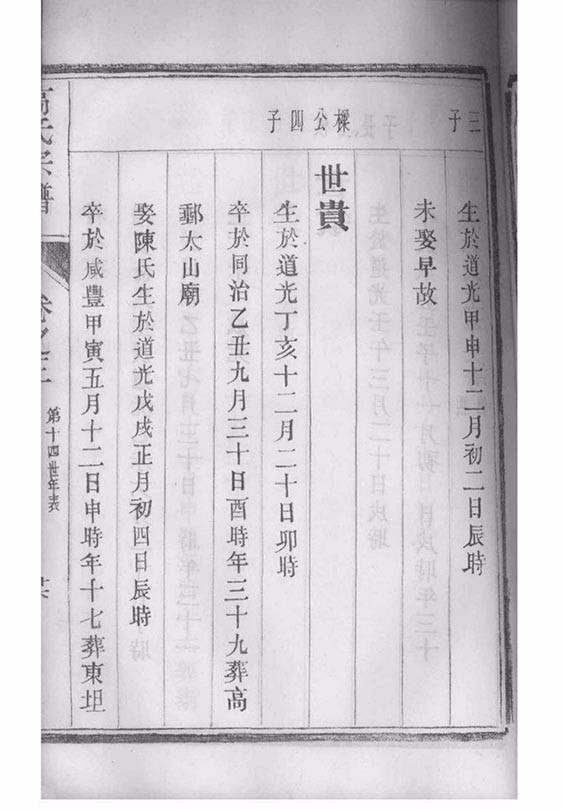 三子
生於道光甲申十二月初二日辰時
未娶早故
樑公四子
世貴
生於道光丁亥十二月二十日卯時
卒於同治乙丑九月三十日酉時年三十九葬高
郵太山廟
娶陳氏生於道光戊戌正月初四日辰時
卒於咸豐甲寅五月十二日申時年十七葬東坦
高氏宗譜
卷之三
第十四世年表